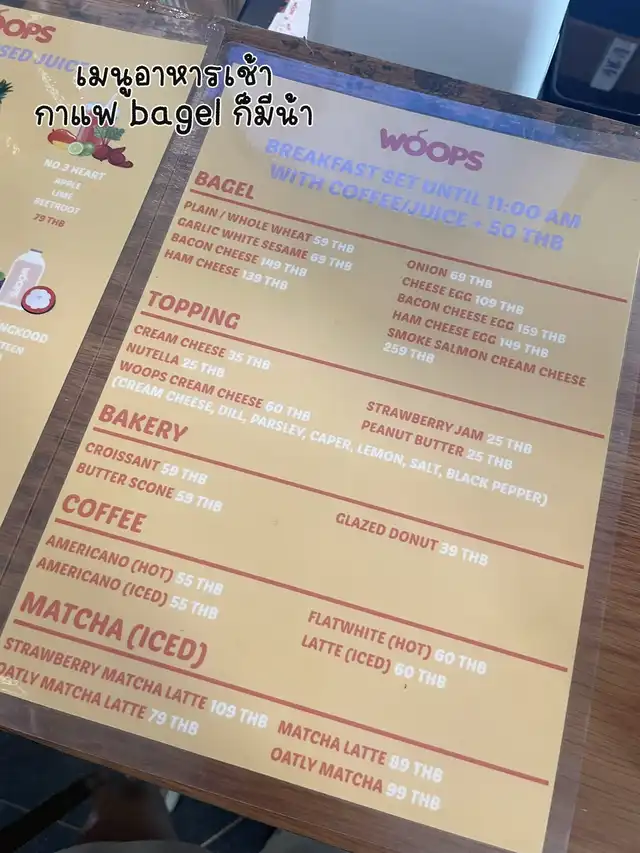 เมนูอาหารเช้า
กาแฟ bagel ก็มีน้า
OOPS
SED JUICE
NO.3 HEART
APPLE
LIME
BEETROOT
79 THB
NGKOOD
TEEN
WOOPS
BREAKFAST SET UNTIL 11:00 AM
WITH COFFEE/JUICE + 50 THB
BAGEL
PLAIN / WHOLE WHEAT 59 THB
GARLIC WHITE SESAME 69 THB
BACON CHEESE 149 THB
HAM CHEESE 139 THB
ONION 69 THB
CHEESE EGG 109 THB
BACON CHEESE EGG 159 THB
HAM CHEESE EGG 149 THB
SMOKE SALMON CREAM CHEESE
259 THB
TOPPING
CREAM CHEESE 35 THB
NUTELLA 25 THB
WOOPS CREAM CHEESE 60 THB
(CREAM CHEESE, DILL, PARSLEY, CAPER, LEMON, SALT, BLACK PEPPER)
STRAWBERRY JAM 25 THB
PEANUT BUTTER 25 THB
BAKERY
CROISSANT 59 THB
BUTTER SCONE 59 THB
GLAZED DONUT 39 THB
COFFEE
AMERICANO (HOT) 55 THB
AMERICANO (ICED) 55 THB
FLATWHITE (HOT) 60 THB
LATTE (ICED) 60 THB
MATCHA (ICED)
STRAWBERRY MATCHA LATTE 109 THB
OATLY MATCHA LATTE 79 THB
MATCHA LATTE 89 THB
OATLY MATCHA 99 THB